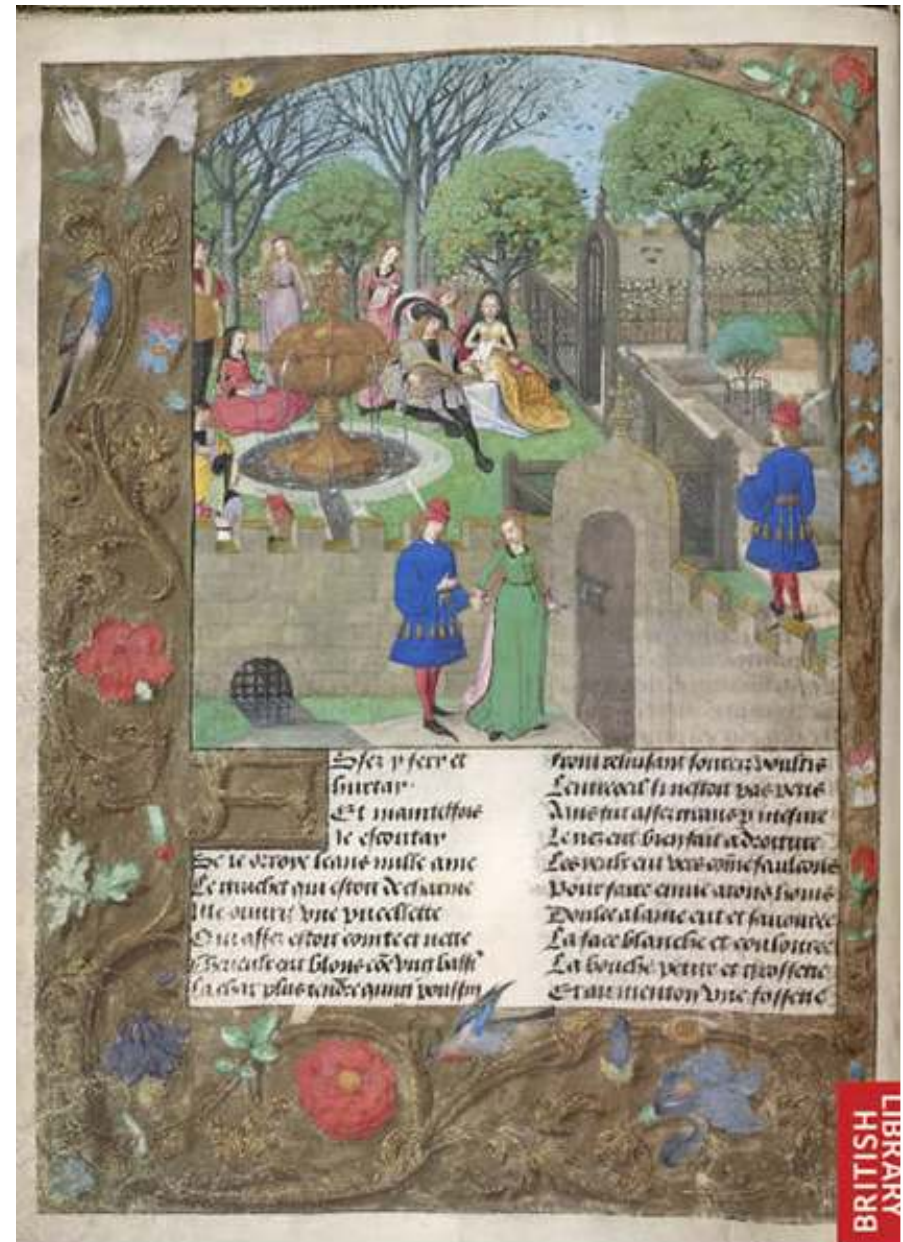 Assez y feri et
hurtay
Et maintesfois
le escoutay
Le guichet qui estoit de charme
Me ouurit vne pucellette
Qui assez estoit cointe et nette
Cheueulx eut blons
La char plus tendre qunt poussin
Lentreoeil si nestoit pas petis
Ains fut assez grans p mesure
Le nez eut bien fait a droiture
Les yeulx eut vers côme faulcons
Pour faire enuie a tous homs
Doulce alaine eut et sauouree
La face blanche et coulouree
La bouche petite et grossette
Et au menton vne fossette
BRITISH
LIBRARY